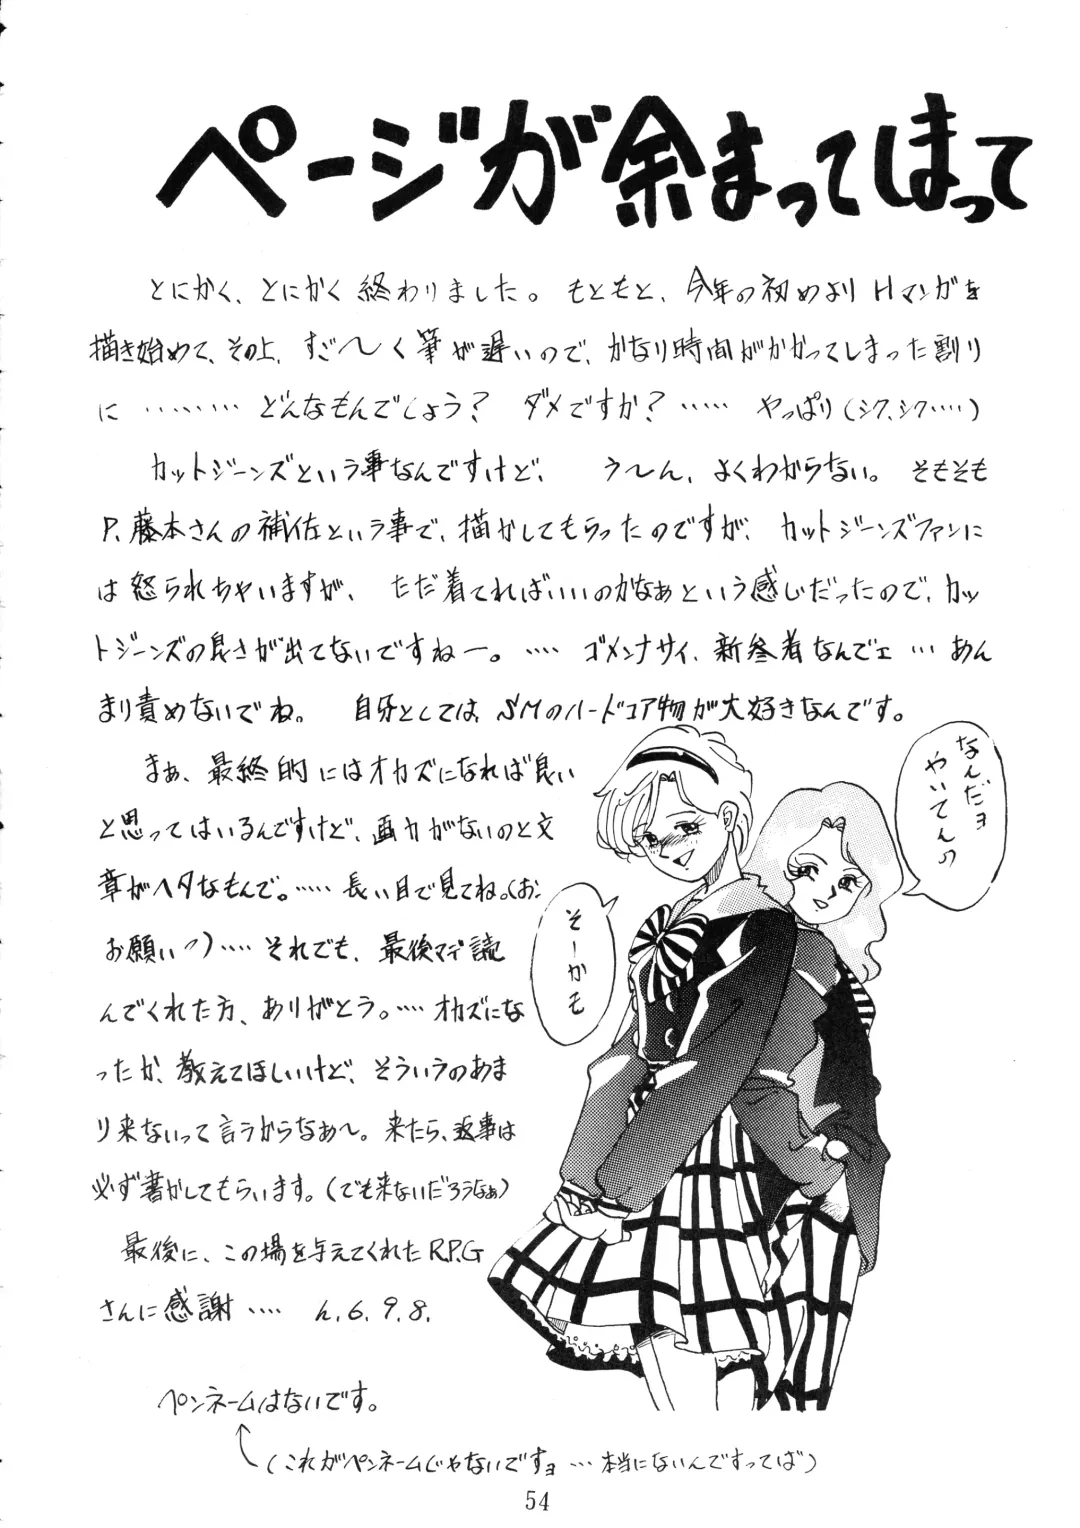 ページが余まってしまって
とにかく、とにかく終わりました。もともと、今年の初めよりHマンガを
描き始めて、その上、すご〜く筆が遅いので、かなり時間がかかってしまった割り
に ……… どんなもんでしょう? ダメですか? …… やっぱり(シク、シク……)
カットジーンズという事なんですけど、 う〜ん、よくわからない。そもそも
P、藤本さんの補佐という事で、描かしてもらったのですが、カットジーンズファンに
は怒られちゃいますが、ただ着てればいいのかなぁという感じだったので、カッ
トジーンズの良さが出てないですねー。…… ゴメンナサイ、新参者なんでェ … あん
まり責めないでね。 自分としては、SMのハードコア物が大好きなんです。
まぁ、最終的にはオカズになれば良い
と思ってはいるんですけど、画力がないのと文
章がヘタなもんで。…… 長い目で見てね。(お、
お願いっ)…… それでも、最後マデ読
んでくれた方、ありがとう。…… オカズにな
ったか、教えてほしいけど、そういうのあま
り来ないって言うからなぁ〜。来たら、返事は
必ず書かしてもらいます。(でも来ないだろうなぁ)
最後に、この場を与えてくれたR.P.G
さんに感謝 …… h.6.9.8.
なんだョ
やいてんの
そーかも
ペンネームはないです。
(これがペンネームじゃないですョ … 本当にないんですってば)
54